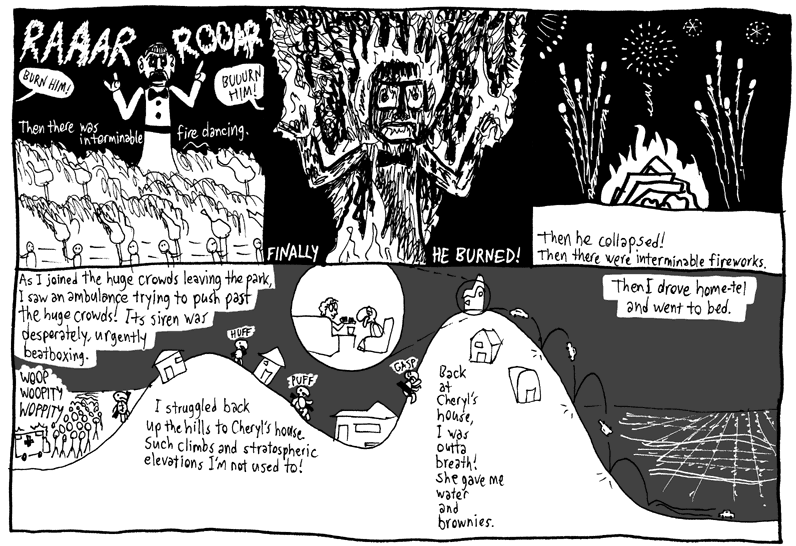 RAAAR ROOAR
BURN HIM!
BUUURN
HIM!
Then there was
interminable
fire dancing.
FINALLY
HE BURNED!
Then he collapsed!
Then there were interminable fireworks.
As I joined the huge crowds leaving the park,
I saw an ambulance trying to push past
the huge crowds! Its siren was
desperately, urgently
beatboxing.
WOOP
WOOPITY
WOPPITY
HUFF
PUFF
GASP
I struggled back
up the hills to Cheryl's house.
Such climbs and stratospheric
elevations I'm not used to!
Back
at
Cheryl's
house,
I was
outta
breath!
She gave me
water
and
brownies.
Then I drove home-tel
and went to bed.